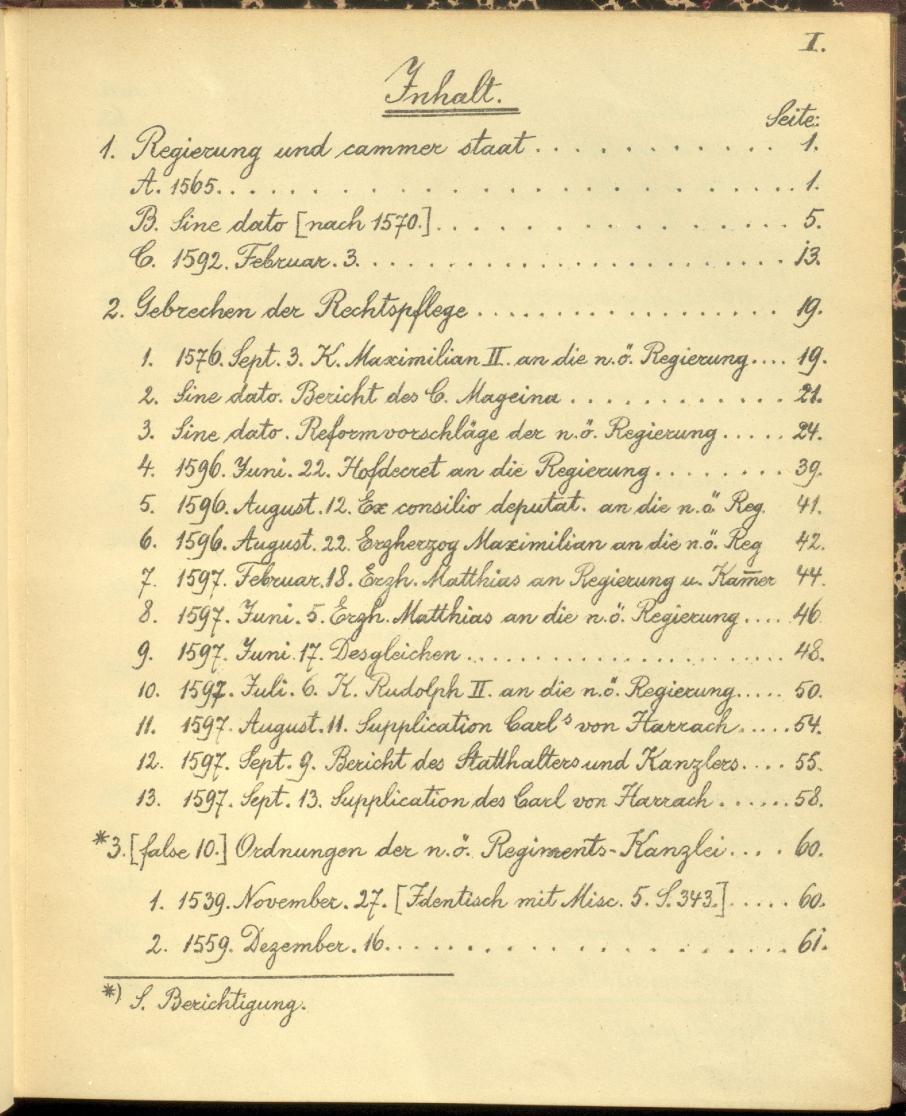 I.
Inhalt.
Seite:
1. Regierung und cammer staat . . . . . . . . . . . . 1.
A. 1565. . . . . . . . . . . . . . . . . . . . . . . . 1.
B. Sine dato [nach 1570.] . . . . . . . . . . . . . . . 5.
C. 1592. Februar. 3. . . . . . . . . . . . . . . . . . 13.
2. Gebrechen der Rechtspflege . . . . . . . . . . . . . . 19.
1. 1576. Sept. 3. K. Maximilian II. an die n.ö. Regierung.... 19.
2. Sine dato. Bericht des C. Mageina . . . . . . . . . . . 21.
3. Sine dato. Reformvorschläge der n.ö. Regierung..... 24.
4. 1596. Juni. 22. Hofdecret an die Regierung........ 39.
5. 1596. August. 12. Ex consilio deputat. an die n.ö Reg. 41.
6. 1596. August. 22. Erzherzog Maximilian an die n.ö. Reg 42.
7. 1597. Februar. 18. Erzh. Matthias an Regierung u. Kam̅er 44.
8. 1597. Juni. 5. Erzh. Matthias an die n.ö. Regierung.... 46.
9. 1597. Juni 17. Desgleichen . . . . . . . . . . . . . . . 48.
10. 1597. Juli. 6. K. Rudolph II. an die n.ö. Regierung..... 50.
11. 1597. August. 11. Supplication Carl's von Harrach..... 54.
12. 1597. Sept. 9. Bericht des Statthalters und Kanzlers.... 55.
13. 1597. Sept. 13. Supplication des Carl von Harrach...... 58.
*3. [false 10.] Ordnungen der n.ö. Regiments-Kanzlei.... 60.
1. 1539. November. 27. [Identisch mit Misc. 5. S. 343.]..... 60.
2. 1559. Dezember. 16. . . . . . . . . . . . . . . . . . 61.
*) S. Berichtigung.